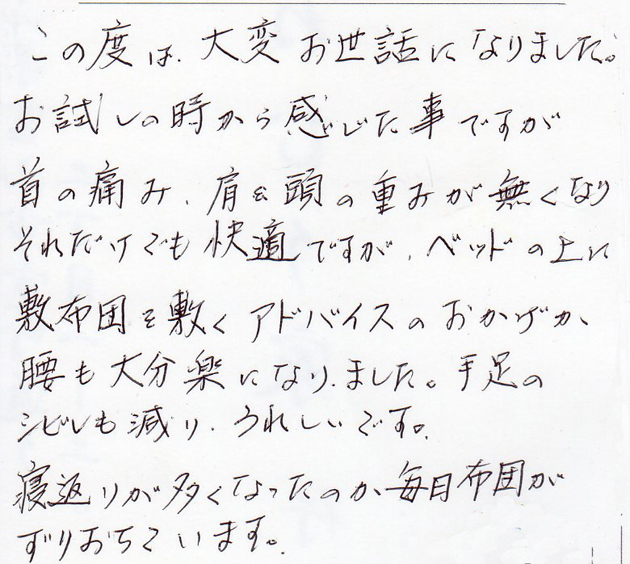 この度は、大変お世話になりました。
お試しの時から感じた事ですが
首の痛み、肩や頭の重みが無くなり
それだけでも快適ですが、ベッドの上に
敷布団を敷くアドバイスのおかげか、
腰も大分楽になりました。手足の
シビレも減り、うれしいです。
寝返りが多くなったのか毎日布団が
ずりおちています。